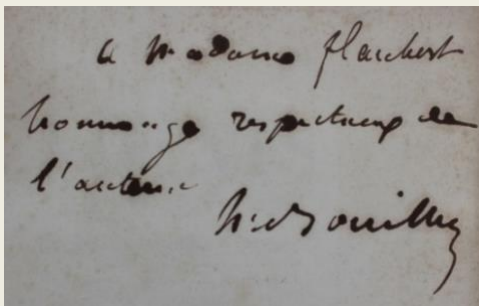 a Madame flaubert
hommage respectueux de
l'auteur